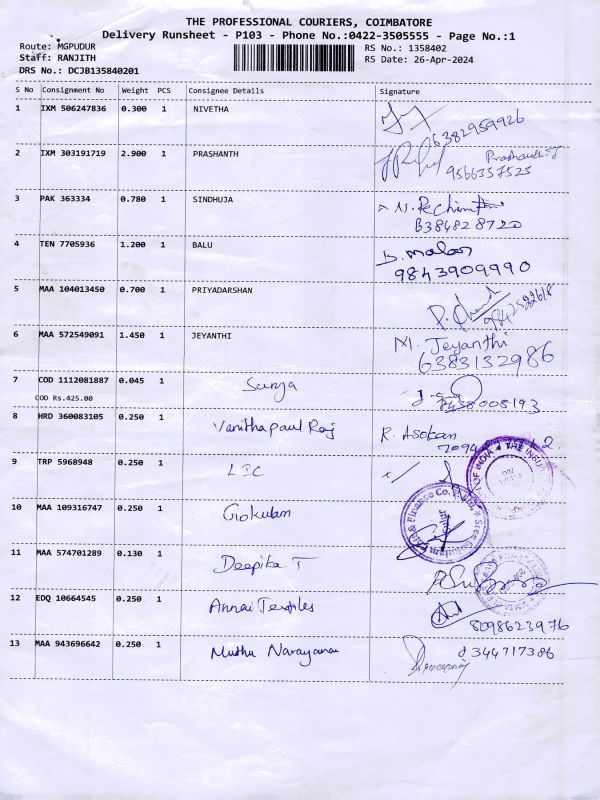 THE PROFESSIONAL COURIERS, COIMBATORE
Delivery Runsheet - P103 - Phone No.:0422-3505555 - Page No.:1
Route: MGPUDUR
RS No.: 1358402
Staff: RANJITH
RS Date: 26-Apr-2024
DRS No.: DCJB135840201
S No Consignment No Weight PCS Consignee Details Signature
1 IXM 506247836 0.300 1 NIVETHA
6382959926
2 IXM 303191719 2.900 1 PRASHANTH Prashanth-J
9566357523
3 PAK 363334 0.780 1 SINDHUJA
8384828720
4 TEN 7705936 1.200 1 BALU
9843909990
5 MAA 104013450 0.700 1 PRIYADARSHAN
9842522618
6 MAA 572549091 1.450 1 JEYANTHI M. Jeyanthi
6383132986
7 COD 1112081887 0.045 1 Surya
8438008193
COD Rs.425.00
8 HRD 360083105 0.250 1 Vanitha paul Raj R. Asokan
9 TRP 5968948 0.250 1 LIC
10 MAA 109316747 0.250 1 Gokulam
11 MAA 574701289 0.130 1 Deepika T
12 EDQ 10664545 0.250 1 Annai Textiles
8098623976
13 MAA 943696642 0.250 1 Muthu Narayanan 8344717386